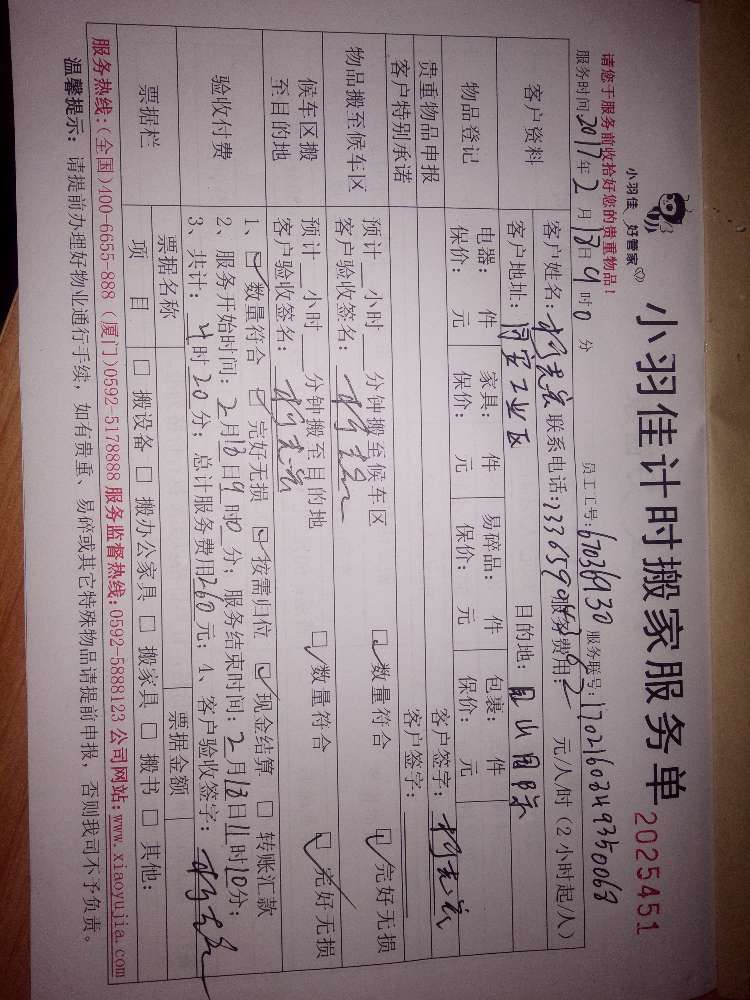 小羽佳 好管家
小羽佳计时搬家服务单
2025451
请您于服务前收拾好您的贵重物品！
员工工号：67036930 服务账号：170216034935006
服务时间 2017 年 2 月 13 日 9 时 0 分
客户资料
客户姓名： 联系电话： 服务费用： 元/人/时（2小时起/人）
客户地址： 工业区 目的地： 国际
物品登记
电器： 件 家具： 件 易碎品： 件 包裹： 件
保价： 元 保价： 元 保价： 元 保价： 元
贵重物品申报 客户签字：
客户特别承诺 客户签字：
物品搬至候车区
预计 小时 分钟搬至候车区 ☑数量符合 ☑完好无损
客户验收签名：
候车区搬至目的地
预计 小时 分钟搬至目的地 ☑数量符合 ☑完好无损
客户验收签名：
验收付费
1、☑数量符合 ☑完好无损 ☑按需归位 ☑现金结算 □转账汇款
2、服务开始时间：2月13日9时0分；服务结束时间：2月13日11时10分；
3、共计： 时20分；总计服务费用260元；4、客户验收签字：
票据栏
票据名称 票据金额
项目 □搬设备 □搬办公家具 □搬家具 □搬书 □其他：
服务热线：(全国)400-6655-888 (厦门)0592-5178888 服务监督热线：0592-5888123 公司网站：www.xiaoyujia.com
温馨提示： 请提前办理好物业通行手续，如有贵重、易碎或其它特殊物品请提前申报，否则我司不予负责。